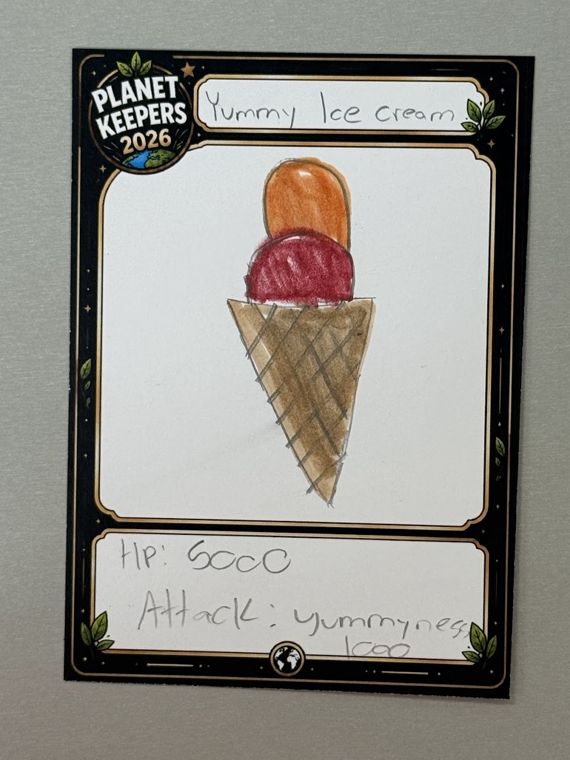 PLANET
KEEPERS
2026
Yummy Ice cream
HP: 5000
Attack: yummyness
1000